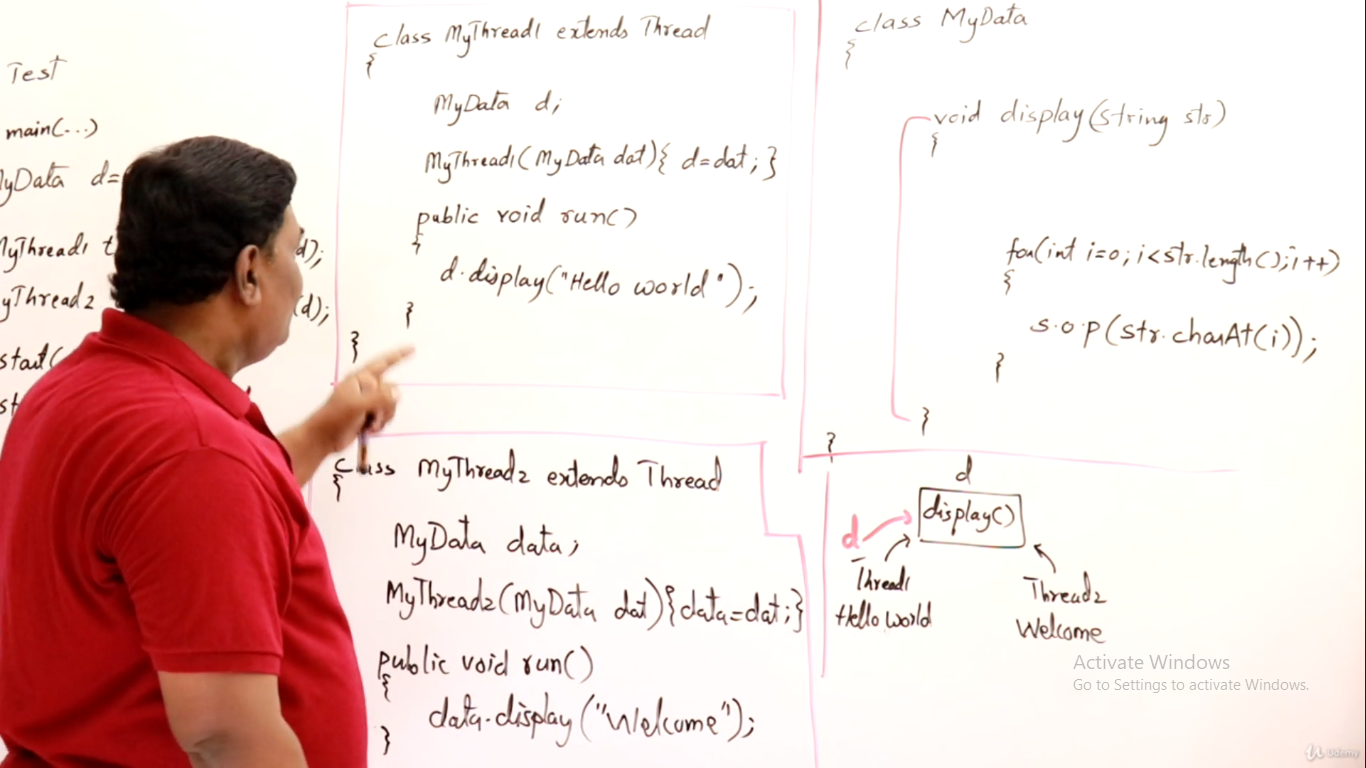 Test
main(...)
MyData d=
MyThread1 t d);
MyThread2 (d);
start(
st
class MyThread1 extends Thread
{
MyData d;
MyThread1(MyData dat){ d=dat; }
public void run()
{
d.display("Hello world");
}
}
class MyThread2 extends Thread
{
MyData data;
MyThread2(MyData dat){data=dat;}
public void run()
{
data.display("Welcome");
}
class MyData
{
void display(string str)
{
for(int i=0;i<str.length();i++)
{
s.o.p(str.charAt(i));
}
}
}
d
display()
d
Thread1
Hello world
Thread2
Welcome
Activate Windows
Go to Settings to activate Windows.
Udemy